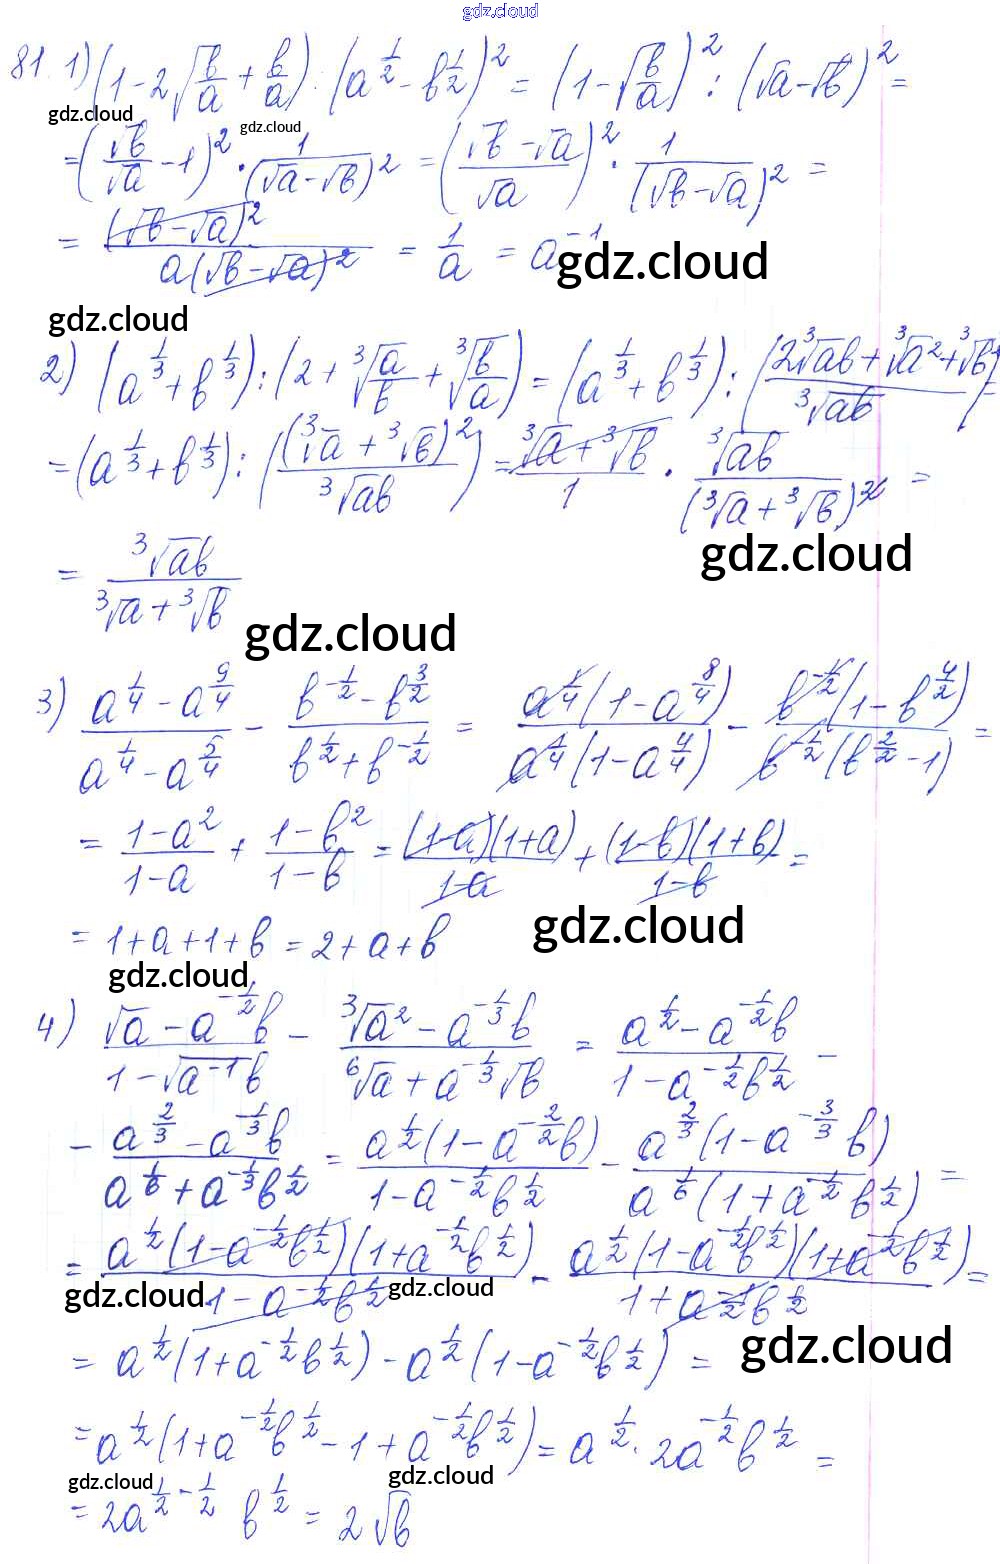 gdz.cloud
81. 1) (1 - 2√(b/a) + b/a) : (a^(1/2) - b^(1/2))² = (1 - √(b/a))² : (√a - √b)² =
gdz.cloud gdz.cloud
= (√b/√a - 1)² · 1/(√a - √b)² = ((√b - √a)/√a)² · 1/(√b - √a)² =
= (√b - √a)²/(a(√b - √a)²) = 1/a = a^(-1)
gdz.cloud
gdz.cloud
2) (a^(1/3) + b^(1/3)) : (2 + ³√(a/b) + ³√(b/a)) = (a^(1/3) + b^(1/3)) : ((2³√ab + ³√a² + ³√b²)/³√ab) =
= (a^(1/3) + b^(1/3)) : ((³√a + ³√b)²/³√ab) = (³√a + ³√b)/1 · ³√ab/(³√a + ³√b)² =
gdz.cloud
= ³√ab/(³√a + ³√b)
gdz.cloud
3) (a^(1/4) - a^(9/4))/(a^(1/4) - a^(5/4)) - (b^(-1/2) - b^(3/2))/(b^(1/2) + b^(-1/2)) = a^(1/4)(1 - a^(8/4))/(a^(1/4)(1 - a^(4/4))) - b^(-1/2)(1 - b^(4/2))/(b^(-1/2)(b^(2/2) - 1)) =
= (1 - a²)/(1 - a) + (1 - b²)/(1 - b) = (1 - a)(1 + a)/(1 - a) + (1 - b)(1 + b)/(1 - b) =
= 1 + a + 1 + b = 2 + a + b
gdz.cloud
gdz.cloud
4) (√a - a^(-1/2)b)/(1 - √(a^(-1)b)) - (³√a² - a^(-1/3)b)/(⁶√a + a^(-1/3)√b) = (a^(1/2) - a^(-1/2)b)/(1 - a^(-1/2)b^(1/2)) -
- (a^(2/3) - a^(-1/3)b)/(a^(1/6) + a^(-1/3)b^(1/2)) = a^(1/2)(1 - a^(-2/2)b)/(1 - a^(-1/2)b^(1/2)) - a^(2/3)(1 - a^(-3/3)b)/(a^(1/6)(1 + a^(-1/2)b^(1/2))) =
= a^(1/2)(1 - a^(-1/2)b^(1/2))(1 + a^(-1/2)b^(1/2))/(1 - a^(-1/2)b^(1/2)) - a^(1/2)(1 - a^(-1/2)b^(1/2))(1 + a^(-1/2)b^(1/2))/(1 + a^(-1/2)b^(1/2)) =
gdz.cloud gdz.cloud
= a^(1/2)(1 + a^(-1/2)b^(1/2)) - a^(1/2)(1 - a^(-1/2)b^(1/2)) =
gdz.cloud
= a^(1/2)(1 + a^(-1/2)b^(1/2) - 1 + a^(-1/2)b^(1/2)) = a^(1/2) · 2a^(-1/2)b^(1/2) =
gdz.cloud gdz.cloud
= 2a^(1/2 - 1/2) b^(1/2) = 2√b